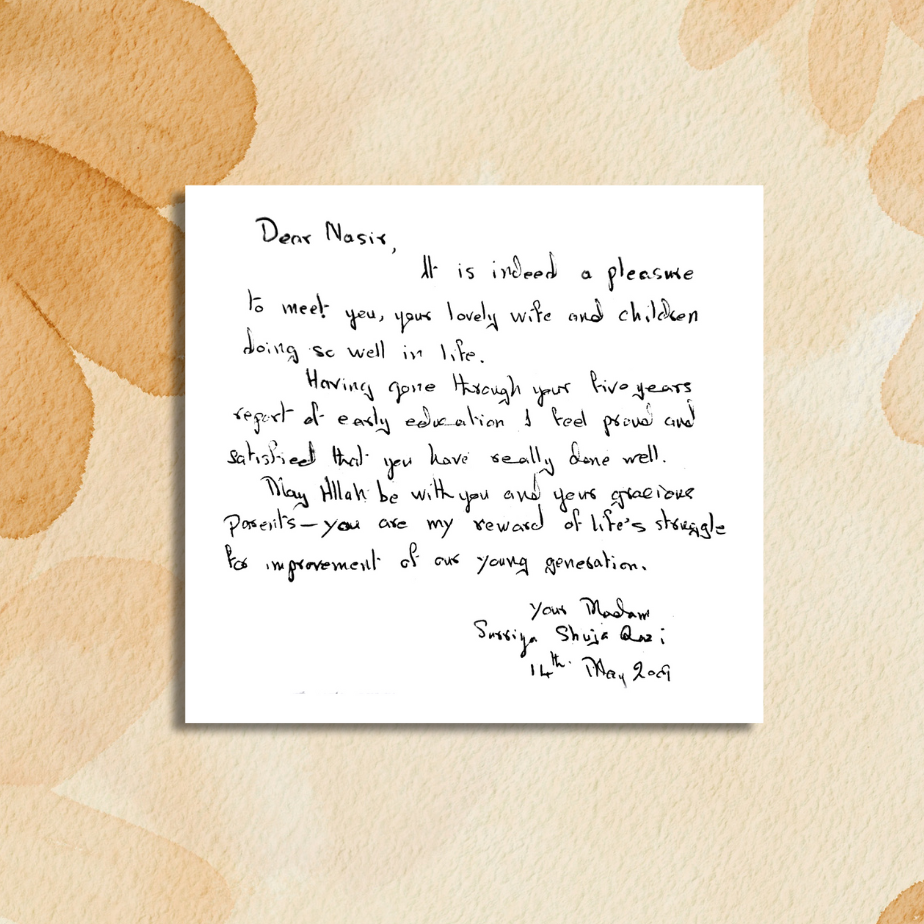 Dear Nasir,
It is indeed a pleasure
to meet you, your lovely wife and children
doing so well in life.
Having gone through your five years
report of early education I feel proud and
satisfied that you have really done well.
May Allah be with you and your gracious
Parents – you are my reward of life's struggle
for improvement of our young generation.
Your Madam
Surriya Shuja Qazi
14th. May 2009